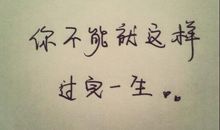 你不能就这样
过完一生。。